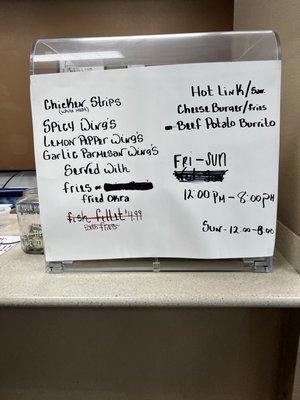 Chicken Strips
(white meat)
Spicy Wing's
Lemon Pepper Wing's
Garlic Parmesan Wing's
Served with
fries or
fried Okra
fish fillet $4.99
Hot Link/
Cheese Burger/fries
Beef Potato Burrito
Fri - Sun
12:00 PM - 8:00 PM
Sun - 12:00 - 8:00